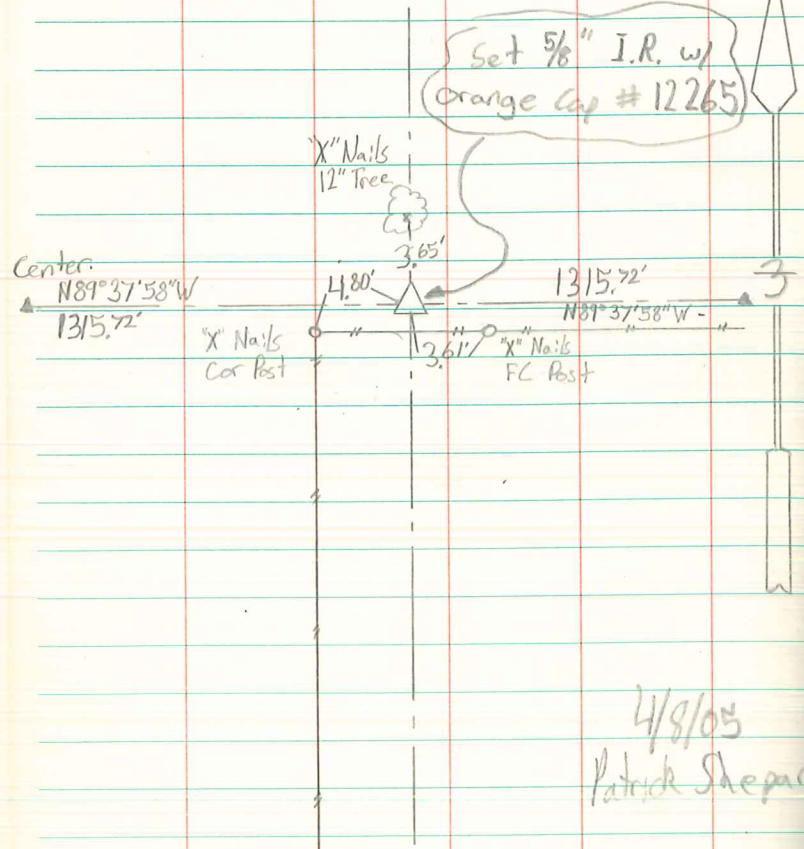 Set 5/8" I.R. w/
Orange Cap # 12265
"X" Nails
12" Tree
3.65'
Center.
N89°37'58"W
1315.72'
4.80'
1315.72'
N89°37'58"W -
3
"X" Nails
Cor Post
3.61'
"X" Nails
FC Post
4/8/05
Patrick Shepar